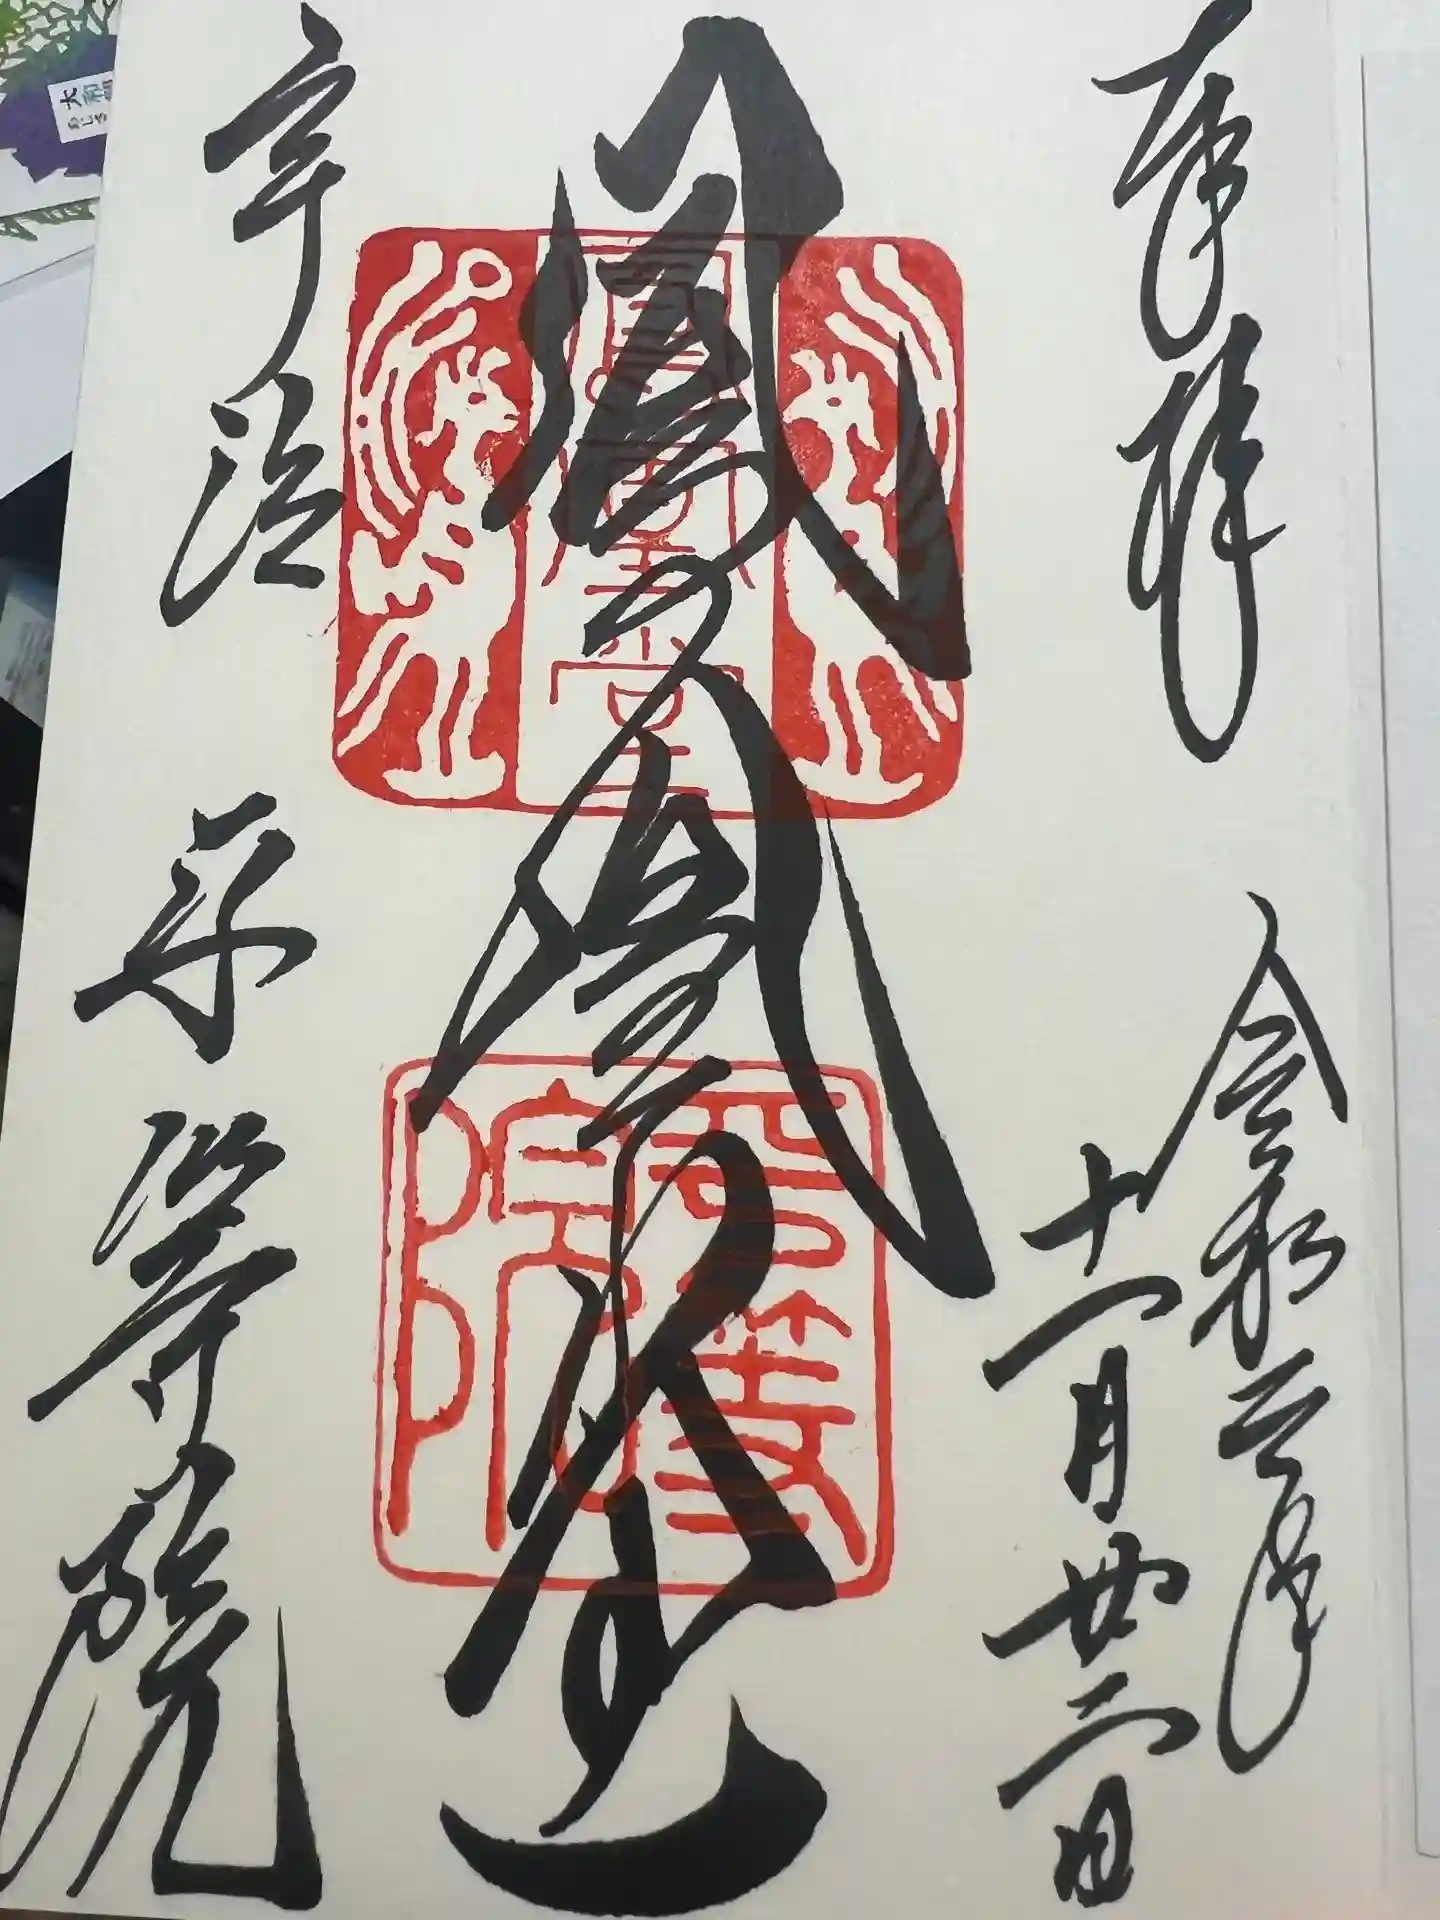 奉拝
令和三年
十一月廿二日
鳳凰堂
鳳凰堂
平等
院
宇治 平等院